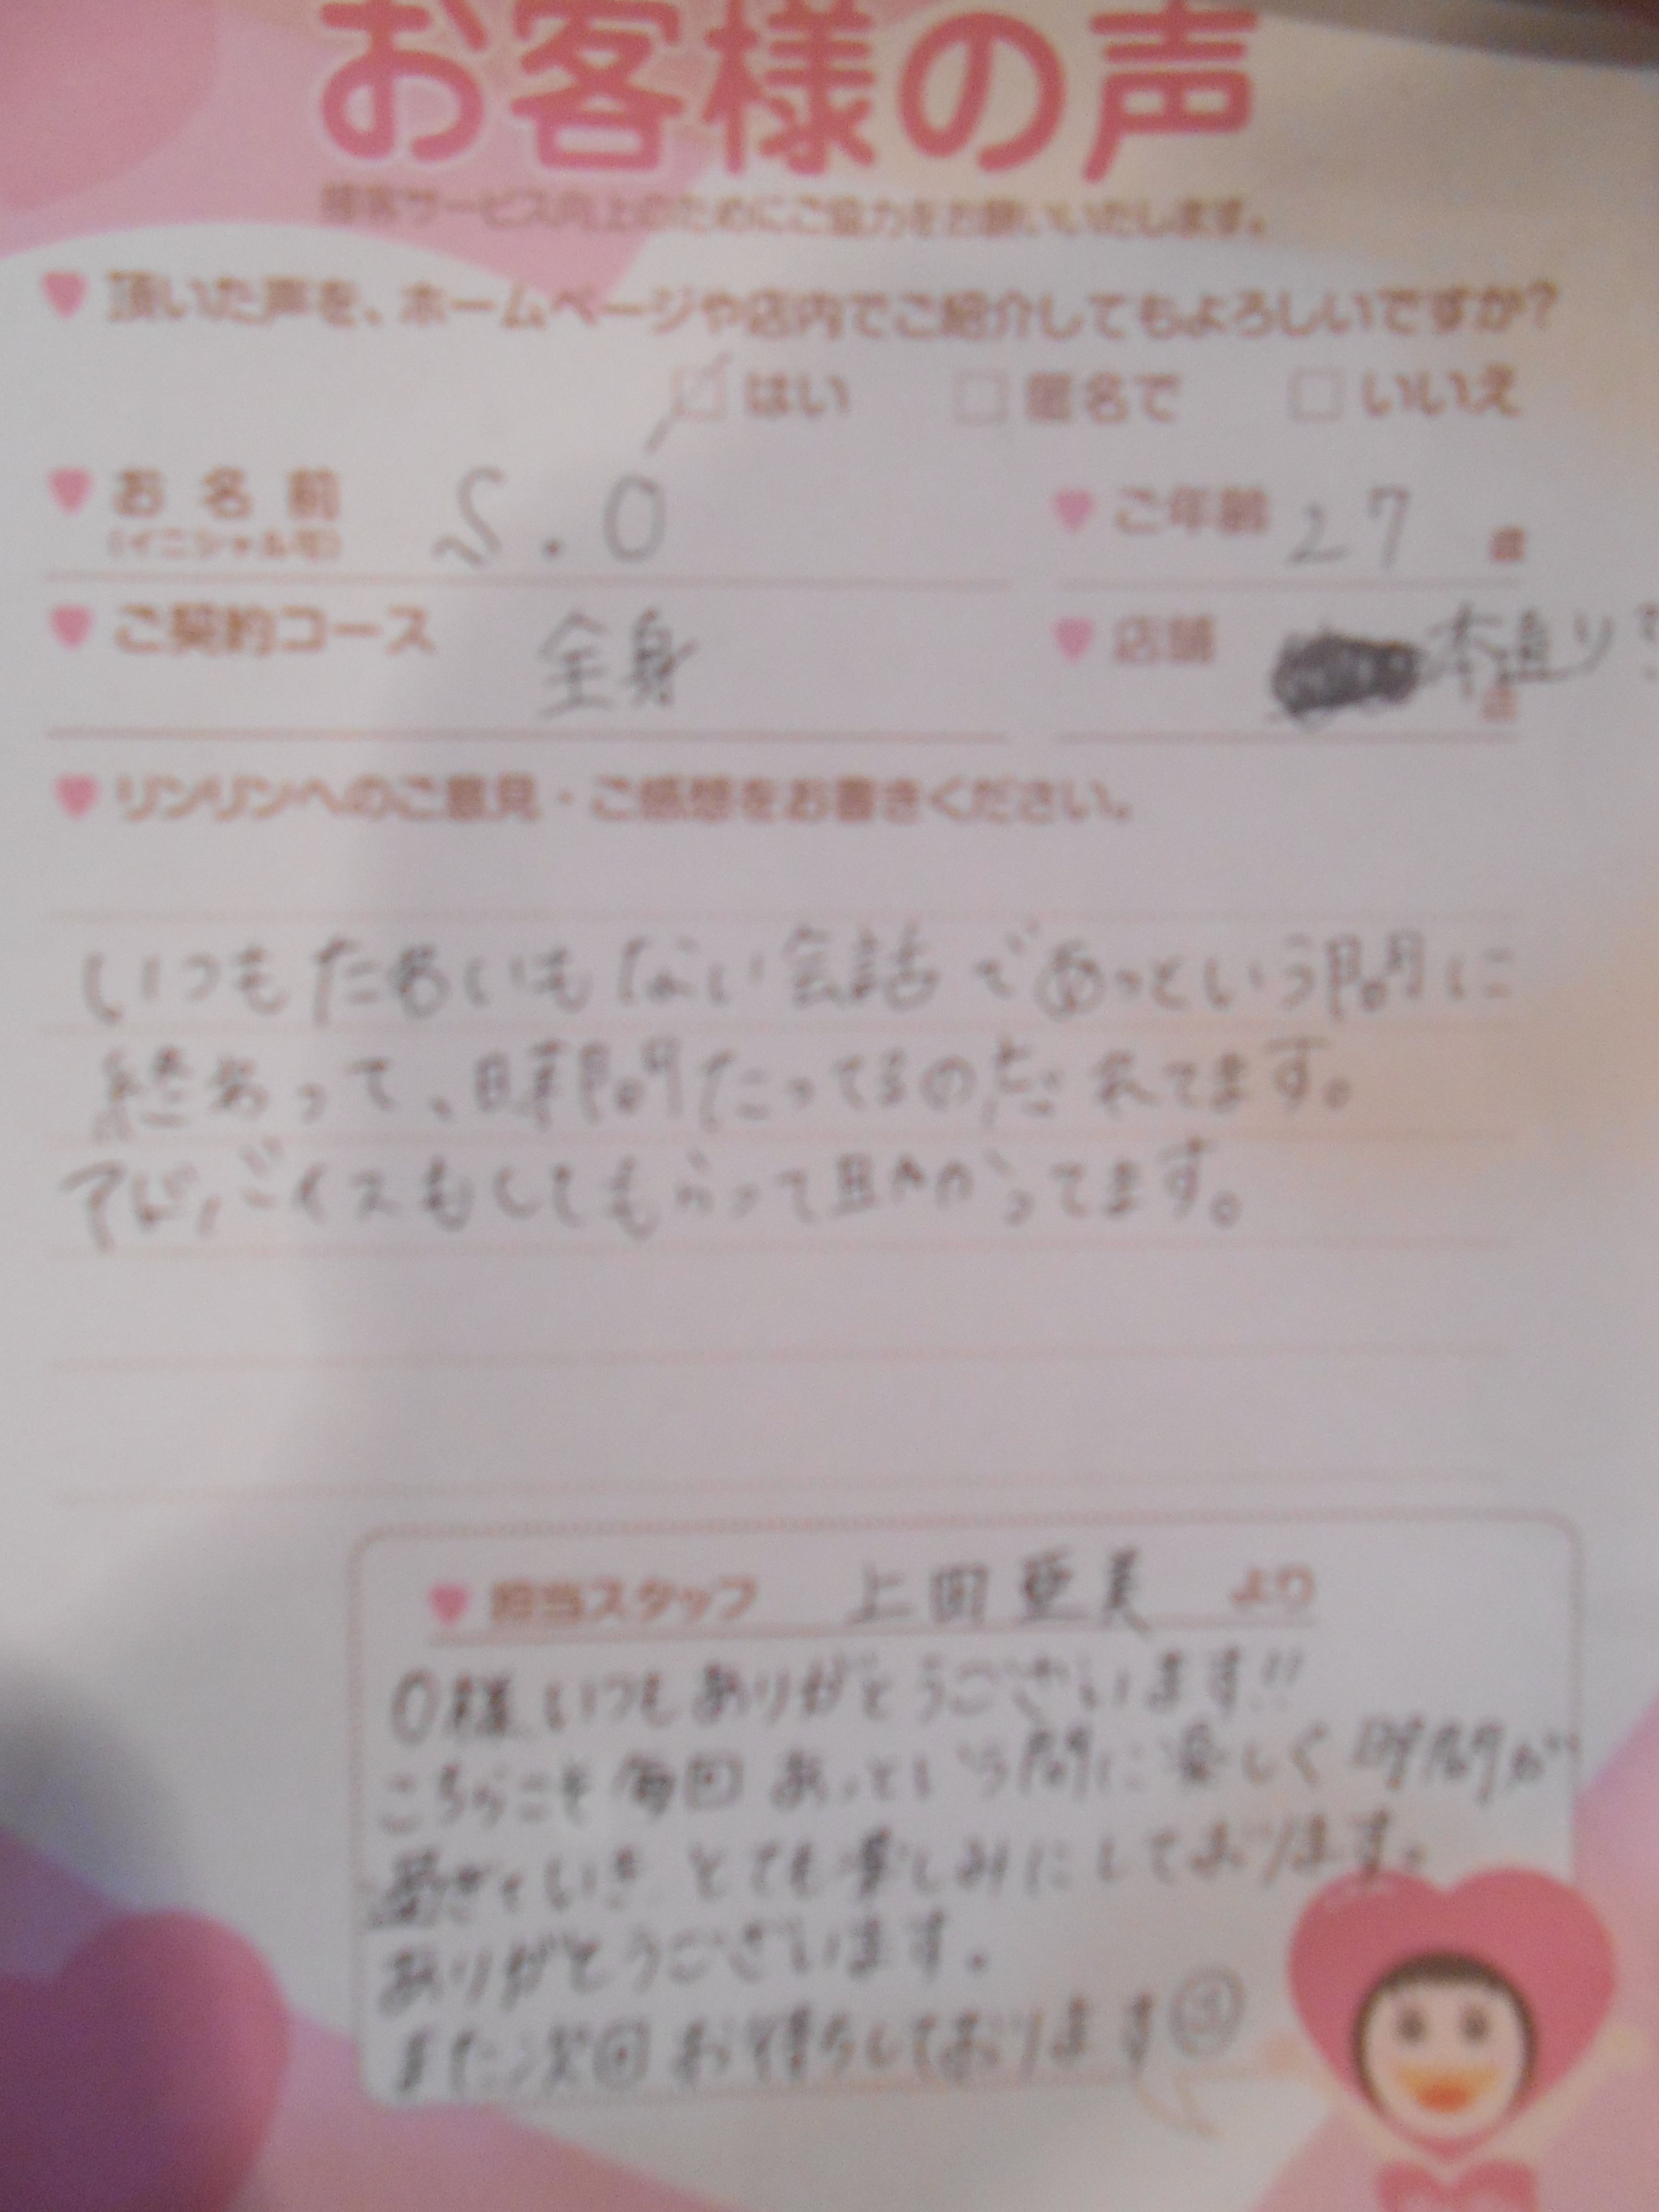 お客様の声
接客サービス向上のためにご協力をお願いいたします。
頂いた声を、ホームページや店内でご紹介してもよろしいですか?
はい 匿名で いいえ
お名前 S.O ご年齢 27 歳
(イニシャル可)
ご契約コース 全身 店舗 本通り 店
リンリンへのご意見・ご感想をお書きください。
いつもたあいもない会話であっという間に
終わって、時間たってるの忘れてます。
アドバイスもしてもらって助かってます。
担当スタッフ 上田 亜美 より
O様 いつもありがとうございます!!
こちらこそ毎回 あっという間に楽しく時間が
過ぎていき とても楽しみにしております。
ありがとうございます。
また次回お待ちしております